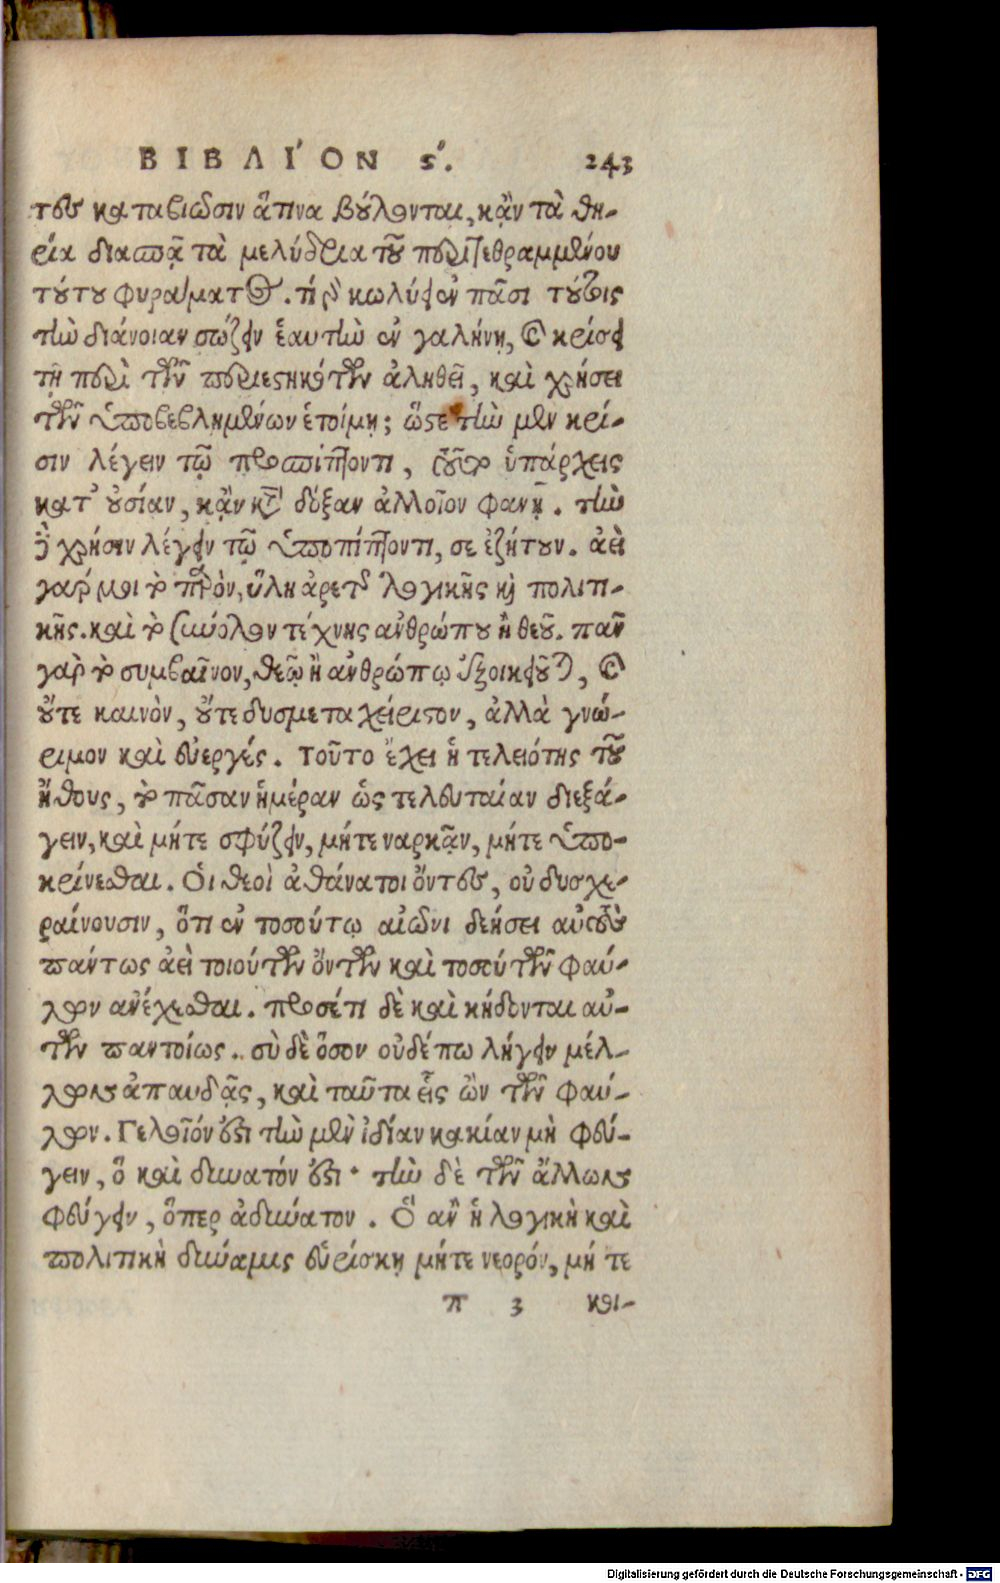 ΒΙΒΛΙ´ΟΝ ϛ´. 243
τες καταβιῶσιν ἅτινα βούλονται, κᾂν τὰ θη-
ρία διασπᾷ τὰ μελύδρια τοῦ περιτεθραμμένου
τούτου φυράματος. τί γὰρ κωλύει ἐν πᾶσι τούτοις
τὴν διάνοιαν σώζειν ἑαυτὴν ἐν γαλήνῃ, καὶ κρίσει
τῇ περὶ τῶν περιεστηκότων ἀληθεῖ, καὶ χρήσει
τῶν ὑποβεβλημένων ἑτοίμῃ; ὥστε τὴν μὲν κρί-
σιν λέγειν τῷ προσπίπτοντι, τοῦτο ὑπάρχεις
κατ' οὐσίαν, κᾂν κατὰ δόξαν ἀλλοῖον φανῇ. τὴν
δὲ χρῆσιν λέγειν τῷ ὑποπίπτοντι, σε ἐζήτουν. ἀεὶ
γάρ μοι τὸ παρὸν, ὕλη ἀρετῆς λογικῆς καὶ πολιτι-
κῆς. καὶ τὸ σύνολον τέχνης ἀνθρώπου ἢ θεοῦ. πᾶν
γὰρ τὸ συμβαῖνον, θεῷ ἢ ἀνθρώπῳ ἐξοικειοῦται, καὶ
οὔτε καινὸν, οὔτε δυσμεταχείριστον, ἀλλὰ γνώ-
ριμον καὶ εὐεργές. Τοῦτο ἔχει ἡ τελειότης τοῦ
ἤθους, τὸ πᾶσαν ἡμέραν ὡς τελευταίαν διεξά-
γειν, καὶ μήτε σφύζειν, μήτε ναρκᾷν, μήτε ὑπο-
κρίνεσθαι. Οἱ θεοὶ ἀθάνατοι ὄντες, οὐ δυσχε-
ραίνουσιν, ὅτι ἐν τοσούτῳ αἰῶνι δεήσει αὐτοὺς
πάντως ἀεὶ τοιούτων ὄντων καὶ τοσούτων φαύ-
λων ἀνέχεσθαι. προσέτι δὲ καὶ κήδονται αὐ-
τῶν παντοίως. σὺ δὲ ὅσον οὐδέπω λήγειν μέλ-
λων ἀπαυδᾷς, καὶ ταῦτα εἷς ὢν τῶν φαύ-
λων. Γελοῖόν ἐστι τὴν μὲν ἰδίαν κακίαν μὴ φεύ-
γειν, ὃ καὶ δυνατόν ἐστι· τὴν δὲ τῶν ἄλλων
φεύγειν, ὅπερ ἀδύνατον. Ὃ ἂν ἡ λογικὴ καὶ
πολιτικὴ δύναμις εὑρίσκῃ μήτε νεορόν, μήτε
π 3 κοι-
Digitalisierung gefördert durch die Deutsche Forschungsgemeinschaft - DFG